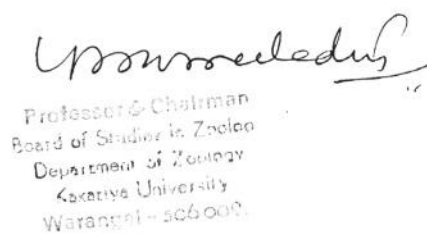 Professor & Chairman
Board of Studies in Zoolog
Department of Zoology
Kakatiya University
Warangal - 506 009.